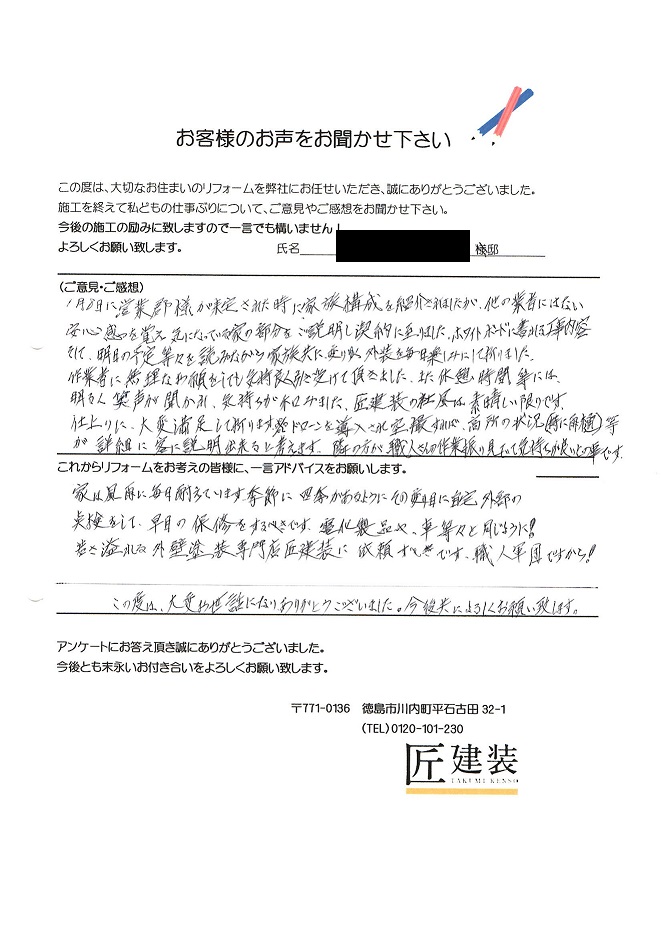 お客様のお声をお聞かせ下さい
この度は、大切なお住まいのリフォームを弊社にお任せいただき、誠にありがとうございました。
施工を終えて私どもの仕事ぶりについて、ご意見やご感想をお聞かせ下さい。
今後の施工の励みに致しますので一言でも構いません!
よろしくお願い致します。 氏名 様邸
(ご意見・ご感想)
1月8日に営業部様が来宅された時に家族構成を紹介されましたが、他の業者にはない
安心感を覚え 気になっている家の部分をご説明し契約に至りました。ホワイトボードに書かれる工事内容
そして、明日の予定等々を読みながら家族共に 外装を毎日楽しみにして折りました。
作業者に無理なお願をしても気持良く引き受けて頂きました、また休憩時間等には、
明るく笑声が聞かれ、気持ちが和みました、匠建装の社風は素晴しい限りです。
仕上りに、大変満足して折ります ドローンを導入され空撮すれば、高所の状況(特に屋根)等
が詳細に客に説明出来ると考えます。隣の方が職人さんの作業振り見ていて気持ちが良いとの事です。
これからリフォームをお考えの皆様に、一言アドバイスをお願いします。
家は風雨に毎日耐えています 季節に四季があるように その変り目に自宅外部の
点検をして、早目の保修をするべきです。電化製品や、車等々と同じように!
若さ溢れる外壁塗装専門店匠建装に依頼すべきです、職人軍団ですから!
この度は、大変お世話になりありがとうございました。今後共によろしくお願い致します。
アンケートにお答え頂き誠にありがとうございました。
今後とも末永いお付き合いをよろしくお願い致します。
〒771-0136 徳島市川内町平石古田 32-1
(TEL)0120-101-230
匠建装
TAKUMI KENSO